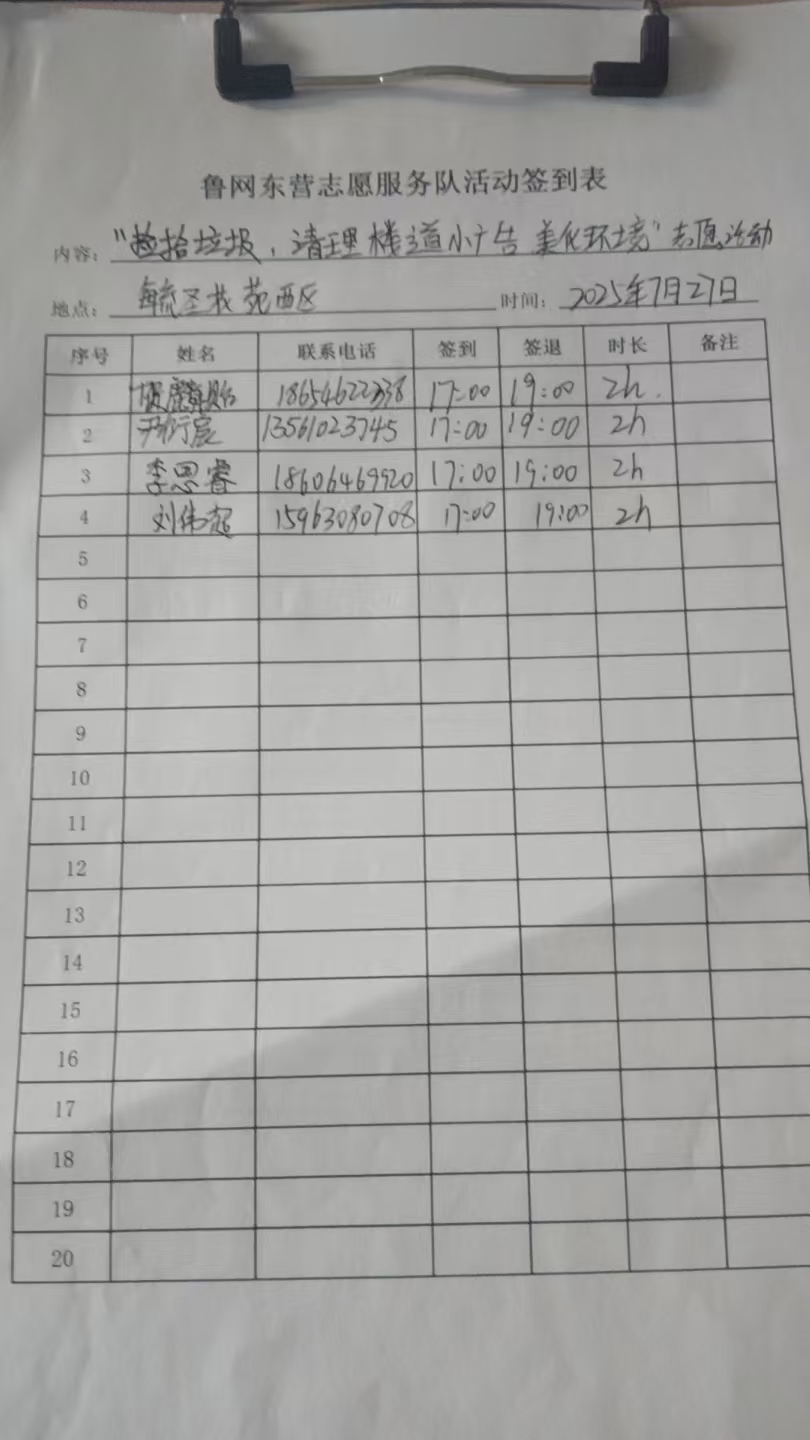 鲁网东营志愿服务队活动签到表
内容：“捡拾垃圾，清理楼道小广告 美化环境”志愿活动
地点： 苑西区 时间：2025年7月27日
序号 姓名 联系电话 签到 签退 时长 备注
1 18654622338 17:00 19:00 2h.
2 13561023745 17:00 19:00 2h
3 李思睿 18606469920 17:00 19:00 2h
4 刘伟超 15963080708 17:00 19:00 2h
5
6
7
8
9
10
11
12
13
14
15
16
17
18
19
20